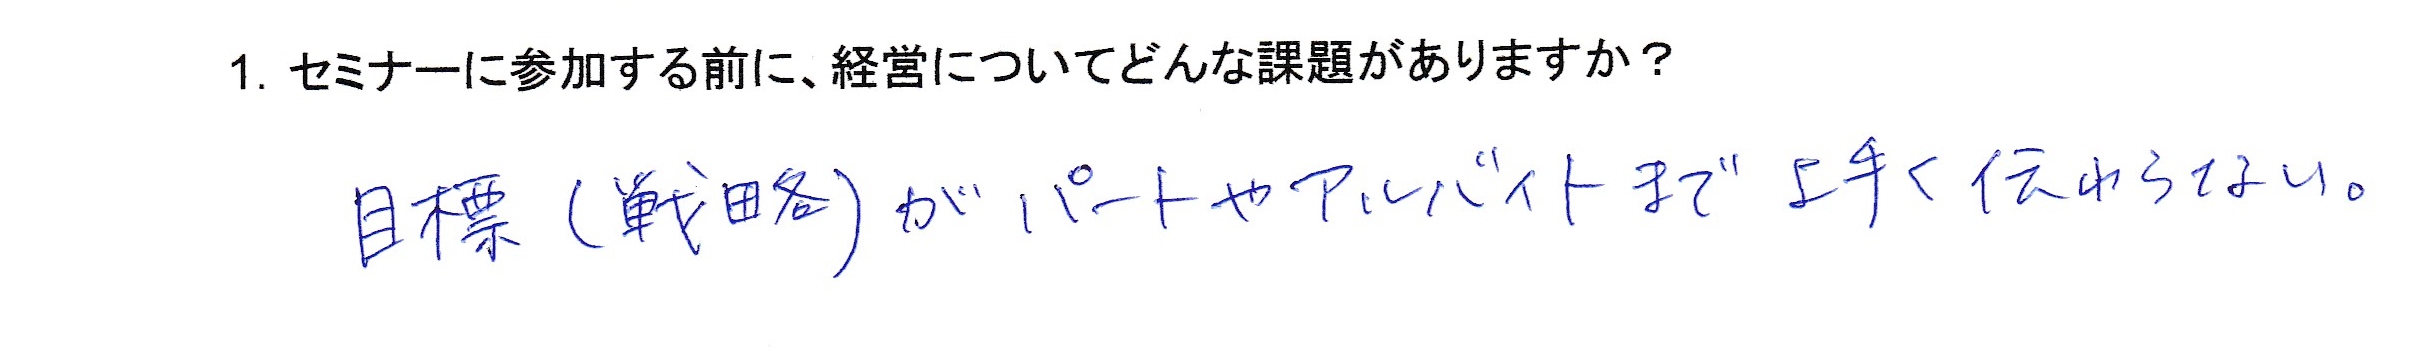 1. セミナーに参加する前に、経営についてどんな課題がありますか？
目標（戦略）がパートやアルバイトまで上手く伝わらない。